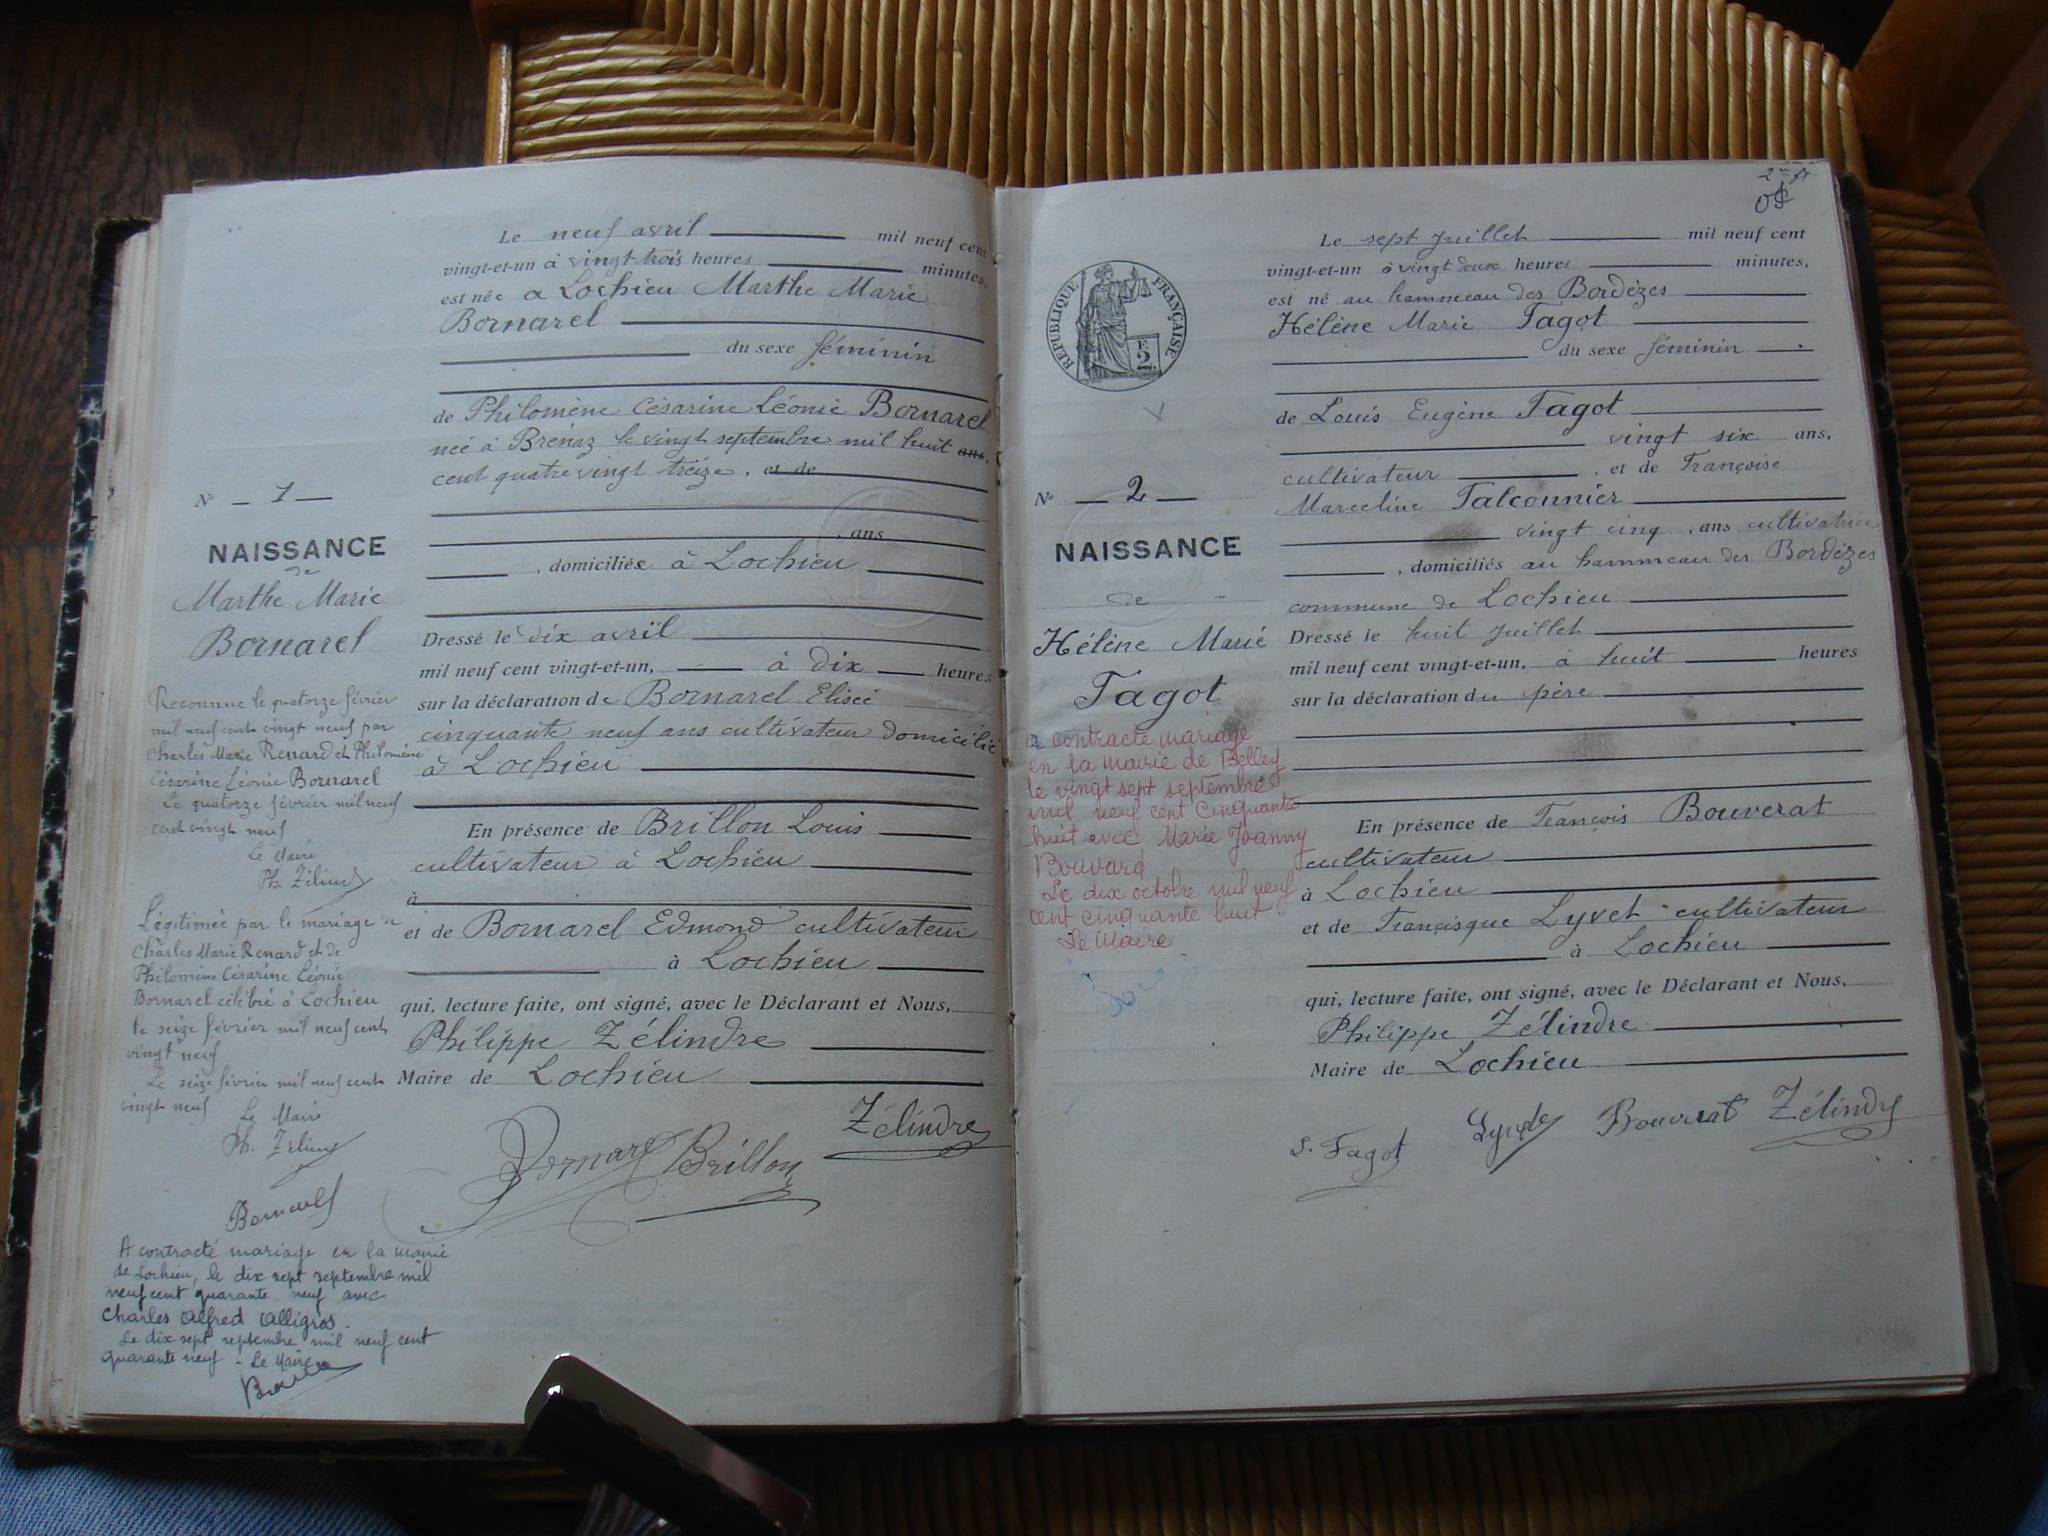 Le neuf avril mil neuf cent
vingt-et-un à vingt trois heures minutes,
est née a Lochieu Marthe Marie
Bornarel
du sexe féminin
de Philomène Césarine Léonie Bornarel
née à Brénaz le vingt septembre mil huit ans,
cent quatre vingt treize, et de
, ans
, domiciliée à Lochieu
Dressé le dix avril
mil neuf cent vingt-et-un, à dix heures
sur la déclaration de Bornarel Elisée
cinquante neuf ans cultivateur domicilié
à Lochieu
En présence de Brillon Louis
cultivateur à Lochieu
à
et de Bornarel Edmond cultivateur
à Lochieu
qui, lecture faite, ont signé, avec le Déclarant et Nous,
Philippe Zélindre
Maire de Lochieu
Zélindre
Bornarel Brillon
N° 1
NAISSANCE
de
Marthe Marie
Bornarel
Reconnue le quatorze février
mil neuf cent vingt neuf par
Charles Marie Renard et Philomène
Césarine Léonie Bornarel
Le quatorze février mil neuf
cent vingt neuf
Le Maire
Ph. Zélind
Légitimée par le mariage de
Charles Marie Renard et de
Philomène Césarine Léonie
Bornarel célébré à Lochieu
le seize février mil neuf cent
vingt neuf
Le seize février mil neuf cent
vingt neuf
Le Maire
Ph. Zélind
A contracté mariage en la mairie
de Lochieu, le dix sept septembre mil
neuf cent quarante neuf avec
Charles Alfred Alligros.
Le dix sept septembre mil neuf cent
quarante neuf - Le Maire
RÉPUBLIQUE FRANÇAISE
F
2.
Le sept juillet mil neuf cent
vingt-et-un à vingt deux heures minutes,
est né au hammeau des Bordèzes
Hélène Marie Fagot
du sexe féminin
de Louis Eugène Fagot
vingt six ans,
cultivateur , et de Françoise
Marceline Falconnier
vingt cinq , ans cultivatrice
, domiciliés au hammeau des Bordèzes
commune de Lochieu
Dressé le huit juillet
mil neuf cent vingt-et-un, à huit heures
sur la déclaration du père
En présence de François Bouverat
cultivateur
à Lochieu
et de Francisque Lyvet cultivateur
à Lochieu
qui, lecture faite, ont signé, avec le Déclarant et Nous,
Philippe Zélindre
Maire de Lochieu
L. Fagot Bouverat Zélindre
N° 2
NAISSANCE
de
Hélène Marie
Fagot
a contracté mariage
en la mairie de Belley
le vingt sept septembre
mil neuf cent cinquante
huit avec Marie Joanny
Bouvard
Le dix octobre mil neuf
cent cinquante huit.
Le Maire